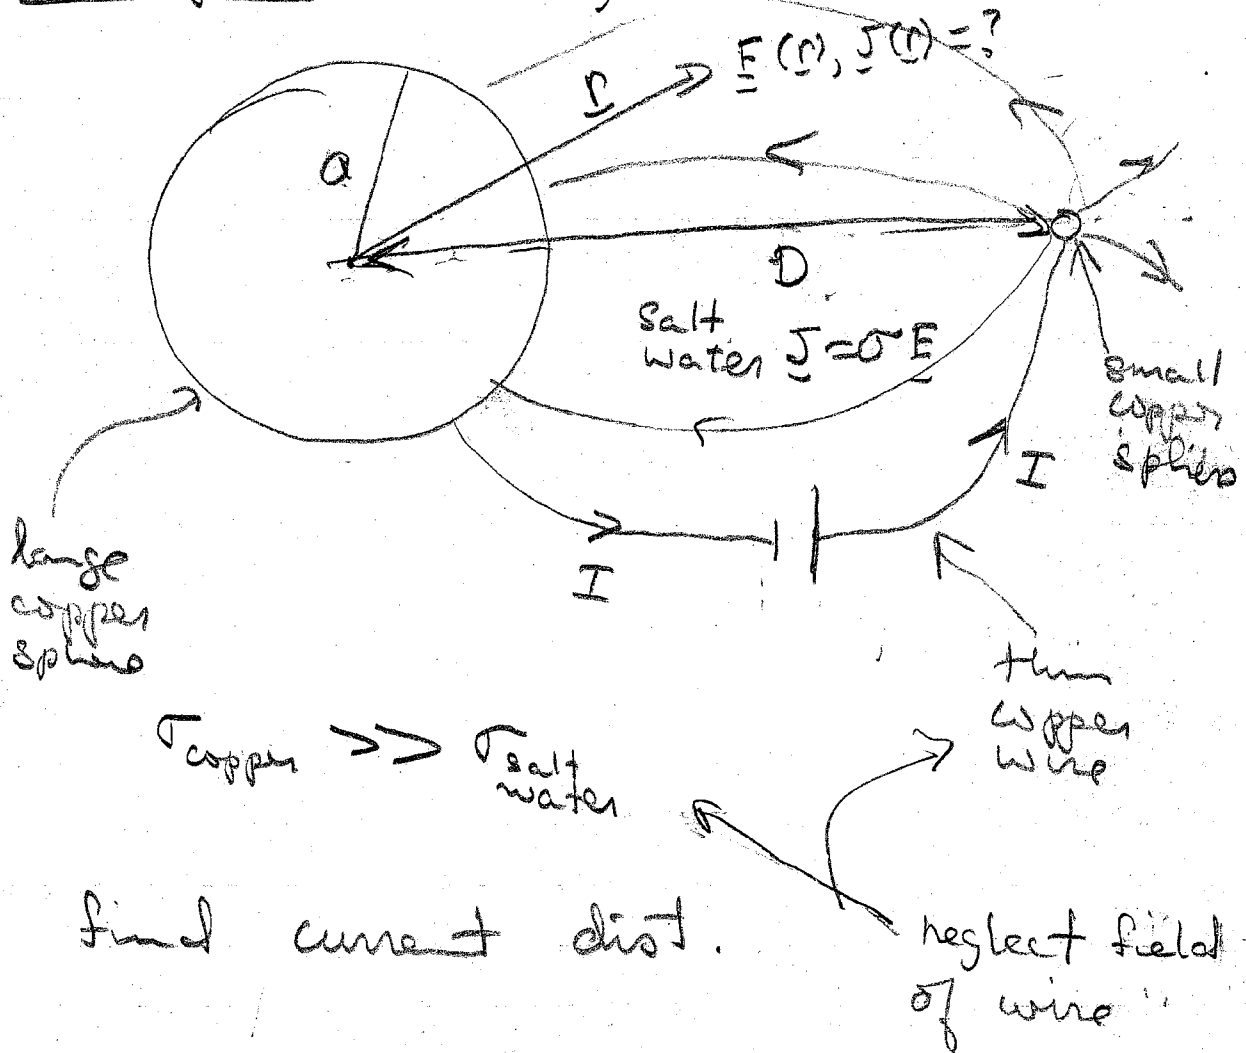 E (r), J (r) = ?
r
a
D
Salt
water J = σ E
small
copper
sphere
I
I
large
copper
sphere
thin
copper
wire
σcopper >> σsalt water
find current dist.
neglect field
of wire